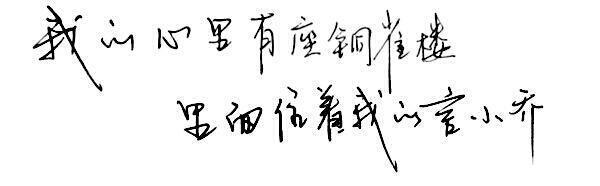 我的心里有座铜雀楼
里面住着我的言小乔